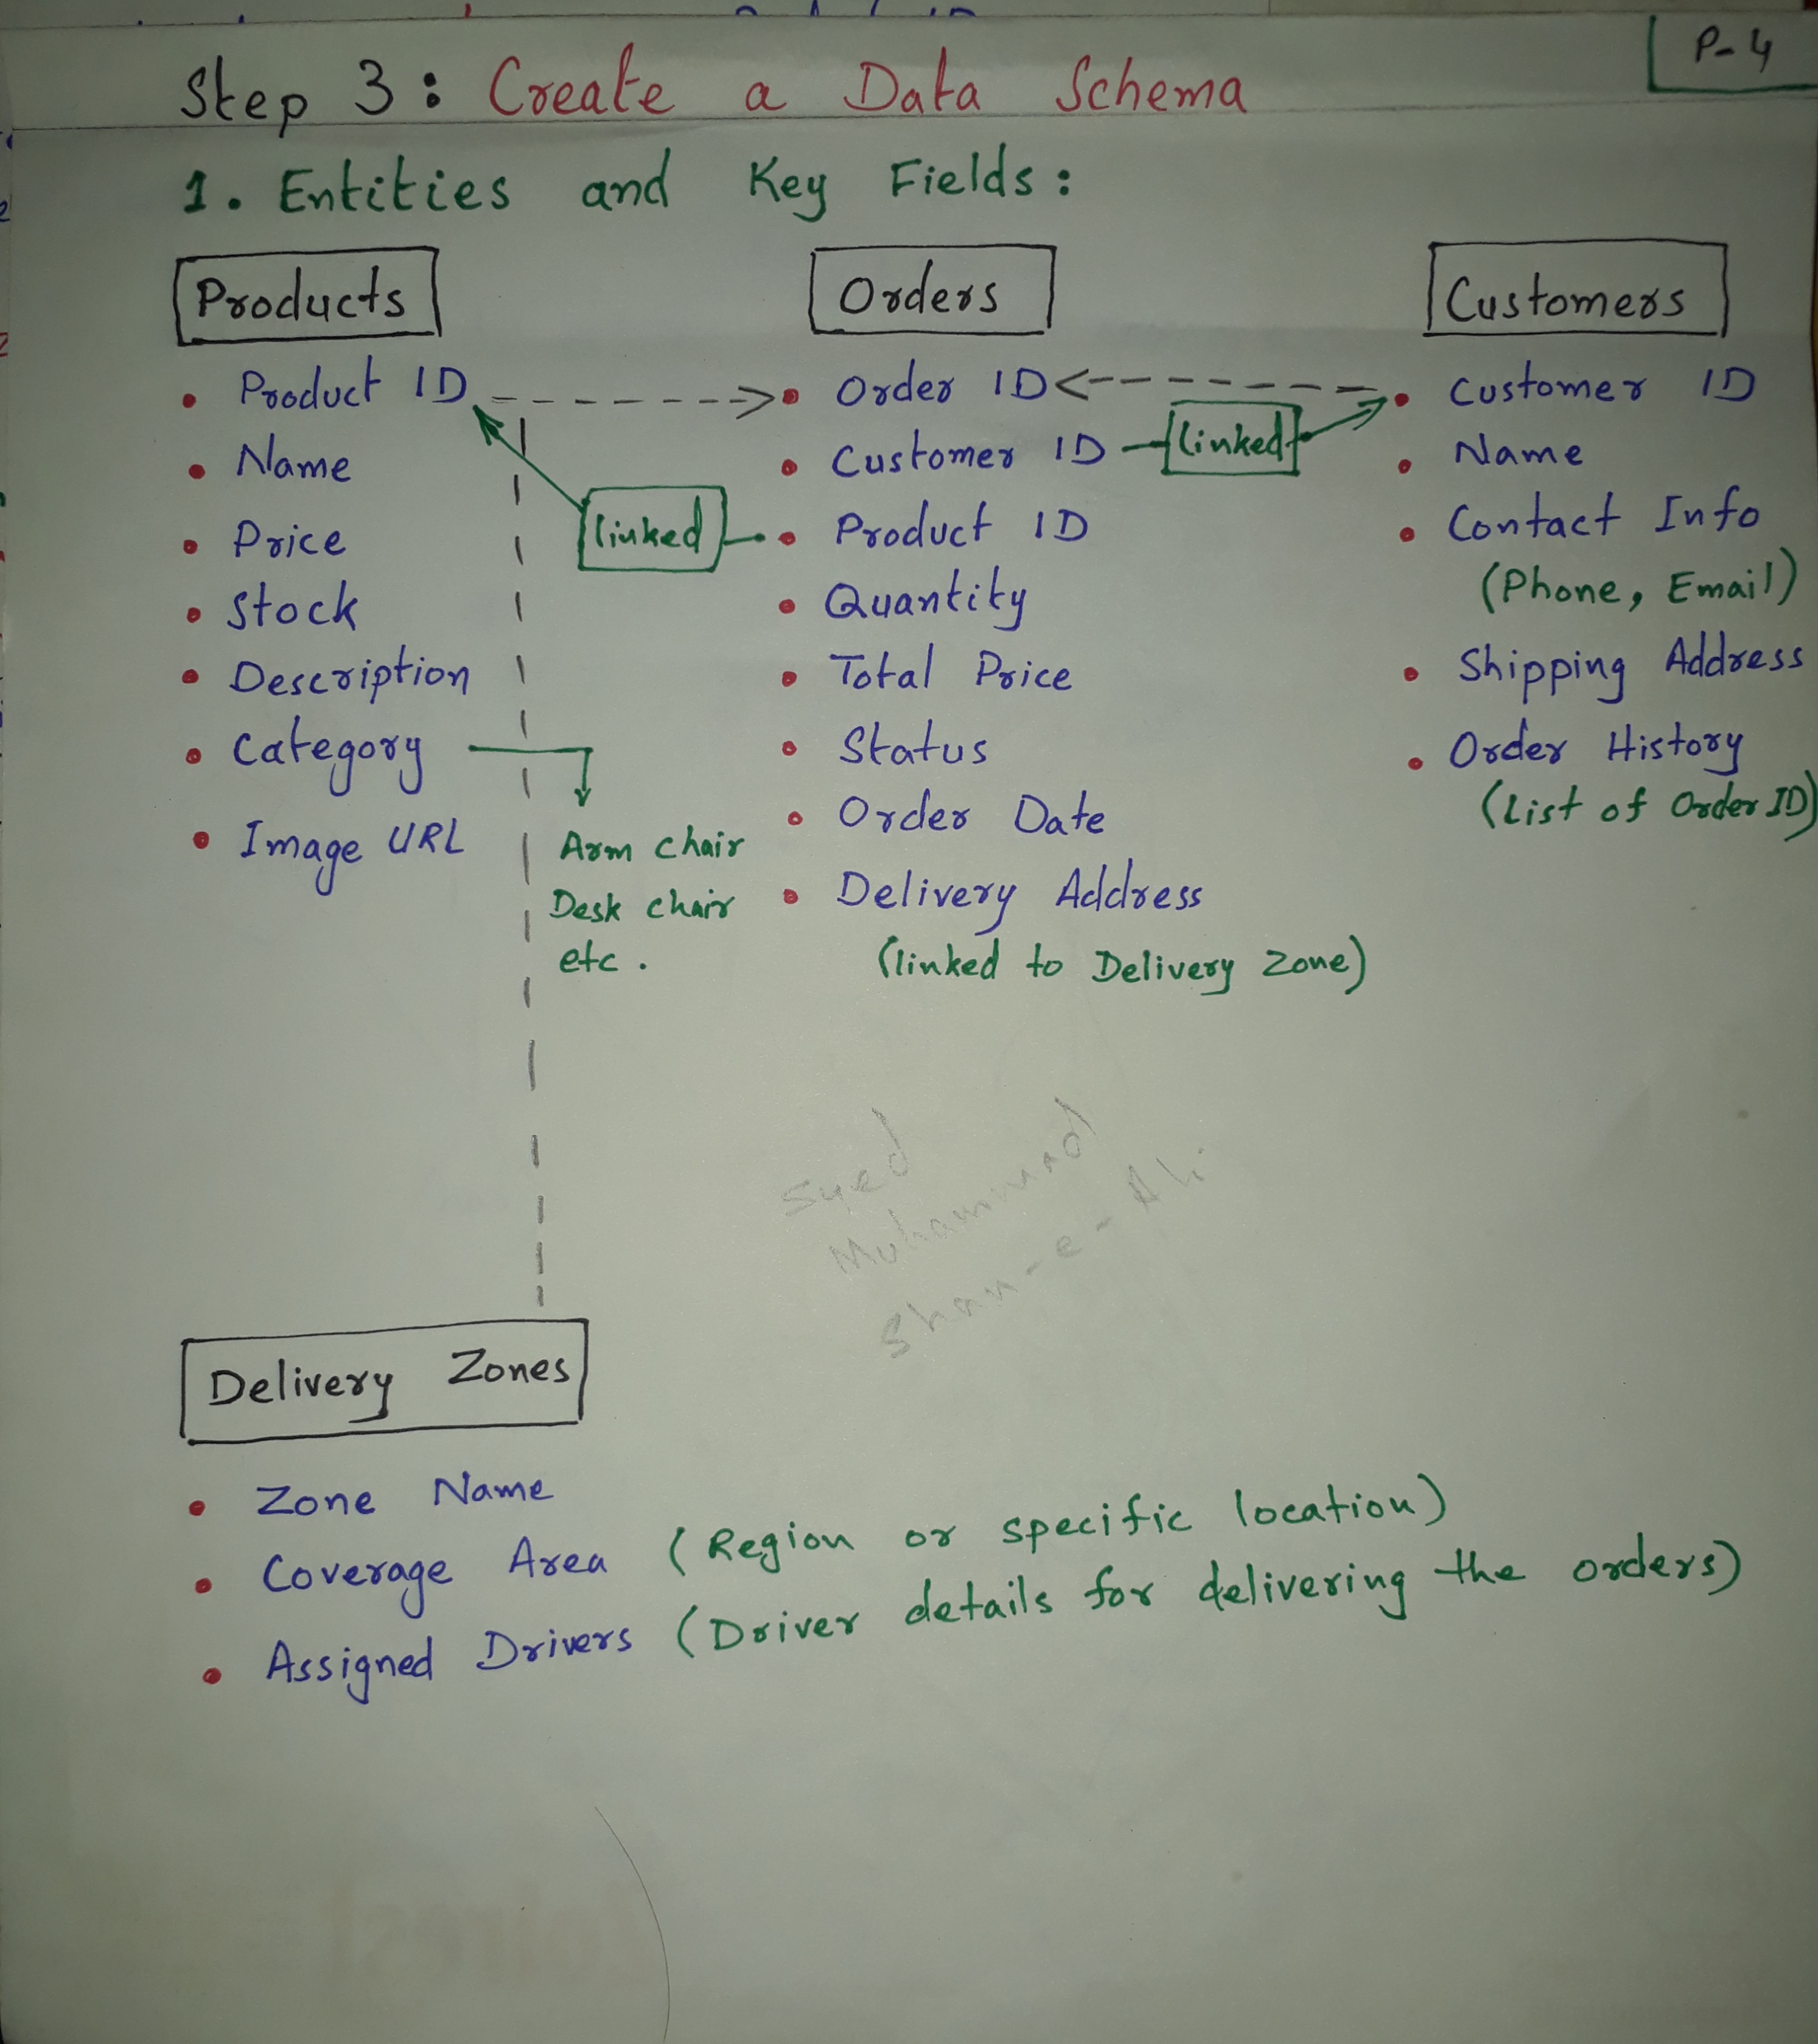 P-4
Step 3: Create a Data Schema
1. Entities and Key Fields:
Products
• Product ID
• Name
• Price
• Stock
• Description
• Category
Arm chair
Desk chair
etc.
• Image URL
linked
Orders
• Order ID
• Customer ID
linked
• Product ID
• Quantity
• Total Price
• Status
• Order Date
• Delivery Address
(linked to Delivery Zone)
Customers
• Customer ID
• Name
• Contact Info
(Phone, Email)
• Shipping Address
• Order History
(List of Order ID)
Syed
Muhammad
Shan-e-Ali
Delivery Zones
• Zone Name
• Coverage Area (Region or specific location)
• Assigned Drivers (Driver details for delivering the orders)